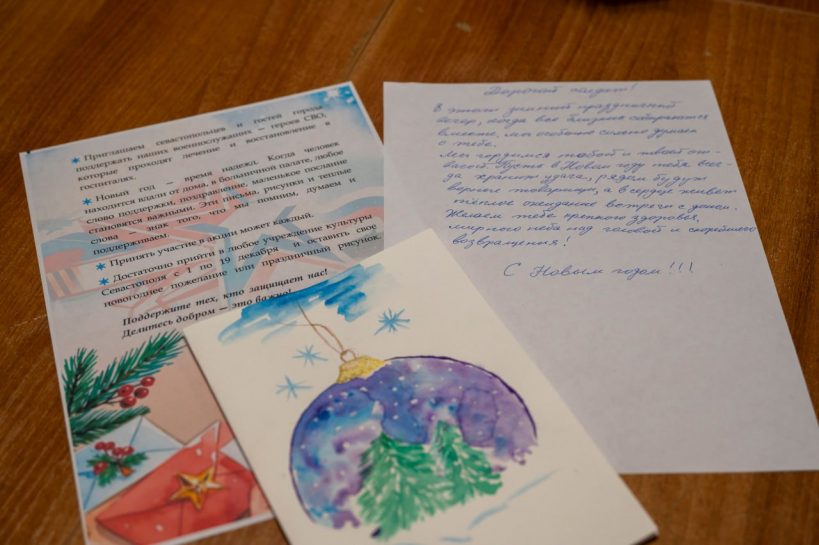 Приглашаем севастопольцев и гостей города
поддержать наших военнослужащих – героев СВО,
которые проходят лечение и восстановление в
госпиталях.
Новый год – время надежд. Когда человек
находится вдали от дома, в больничной палате, любое
слово поддержки, поздравление, маленькое послание
становятся важными. Эти письма, рисунки и теплые
слова – знак того, что мы помним, думаем и
поддерживаем.
Принять участие в акции может каждый.
Достаточно прийти в любое учреждение культуры
Севастополя с 1 по 19 декабря и оставить свое
новогоднее пожелание или праздничный рисунок.
Поддержите тех, кто защищает нас!
Делитесь добром – это важно!
Дорогой солдат!
В этот зимний праздничный
вечер, когда все близкие собираются
вместе, мы особенно сильно думаем
о тебе.
Мы гордимся тобой и твоей от-
вагой. Пусть в Новом году тебя все-
да хранит удача, рядом будут
верные товарищи, а в сердце живет
тёплое ожидание встречи с домом.
Желаем тебе крепкого здоровья,
мирного неба над головой и скорейшего
возвращения!
С Новым годом!!!